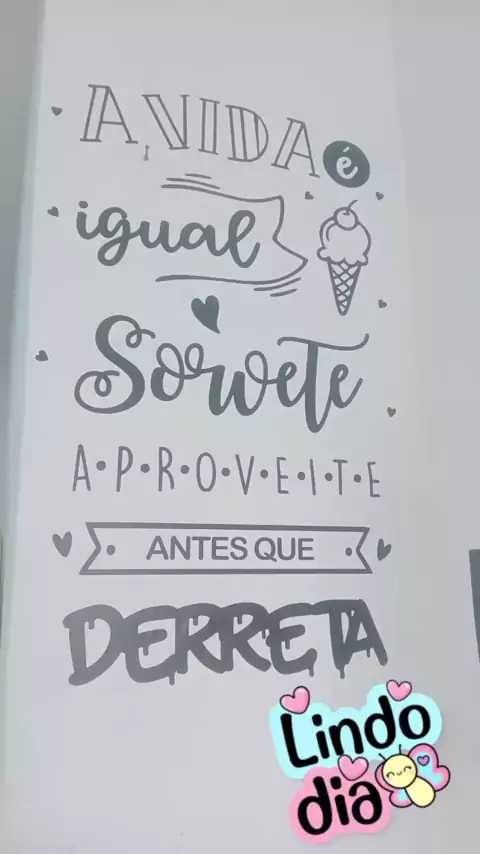 A VIDA é
igual
Sorvete
A•P•R•O•V•E•I•T•E
ANTES QUE
DERRETA
Lindo
dia